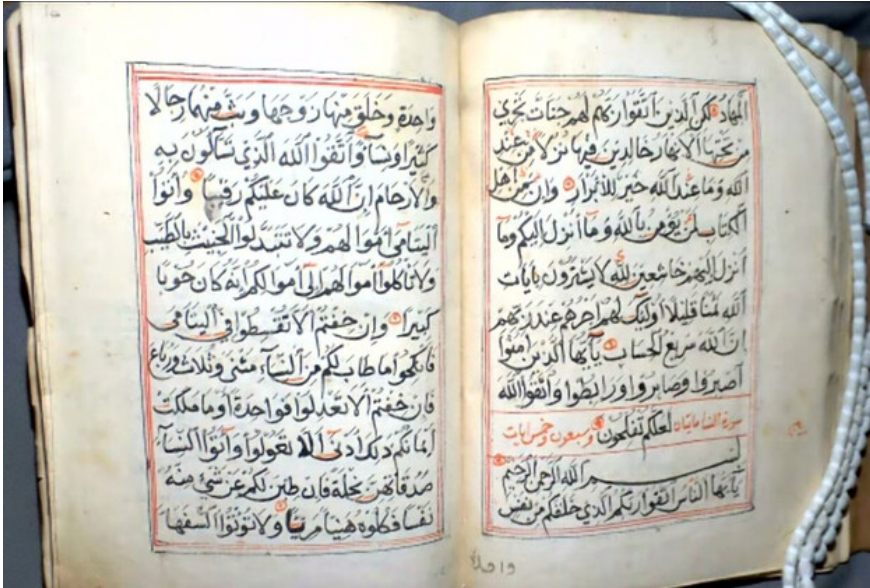 المهاد لكن الذين اتقوا ربهم لهم جنات تجري
من تحتها الانهار خالدين فيها نزلا من عند
الله وما عند الله خير للأبرار وإن من أهل
الكتاب لمن يؤمن بالله وما أنزل إليكم وما
أنزل إليهم خاشعين لله لا يشترون بايات
الله ثمنا قليلا أوليك لهم أجرهم عند ربهم
إن الله سريع الحساب يآيها الذين امنوا
اصبروا وصابروا ورابطوا واتقوا الله
لعلكم تفلحون سورة النسا مايتان وسبعون وخمس ايات
بسم الله الرحمن الرحيم
يآيها الناس اتقوا ربكم الذي خلقكم من نفس
واحدة
واحدة وخلق منها زوجها وبث منهما رجالا
كثيرا ونسآء واتقوا الله الذي تسآلون به
والارحام إن الله كان عليكم رقيبا وآتوا
اليتامى أموالهم ولا تتبدلوا الخبيث بالطيب
ولا تاكلوا أموالهم إلى أموالكم إنه كان حوبا
كبيرا وإن خفتم ألا تقسطوا في اليتامى
فانكحوا ما طاب لكم من النسآء مثنى وثلاث ورباع
فإن خفتم ألا تعدلوا فواحدة أو ما ملكت
أيمانكم ذلك أدنى ألا تعولوا وآتوا النسآء
صدقاتهن نحلة فإن طبن لكم عن شيء منه
نفسا فكلوه هنيا مريا ولا تؤتوا السفهآ